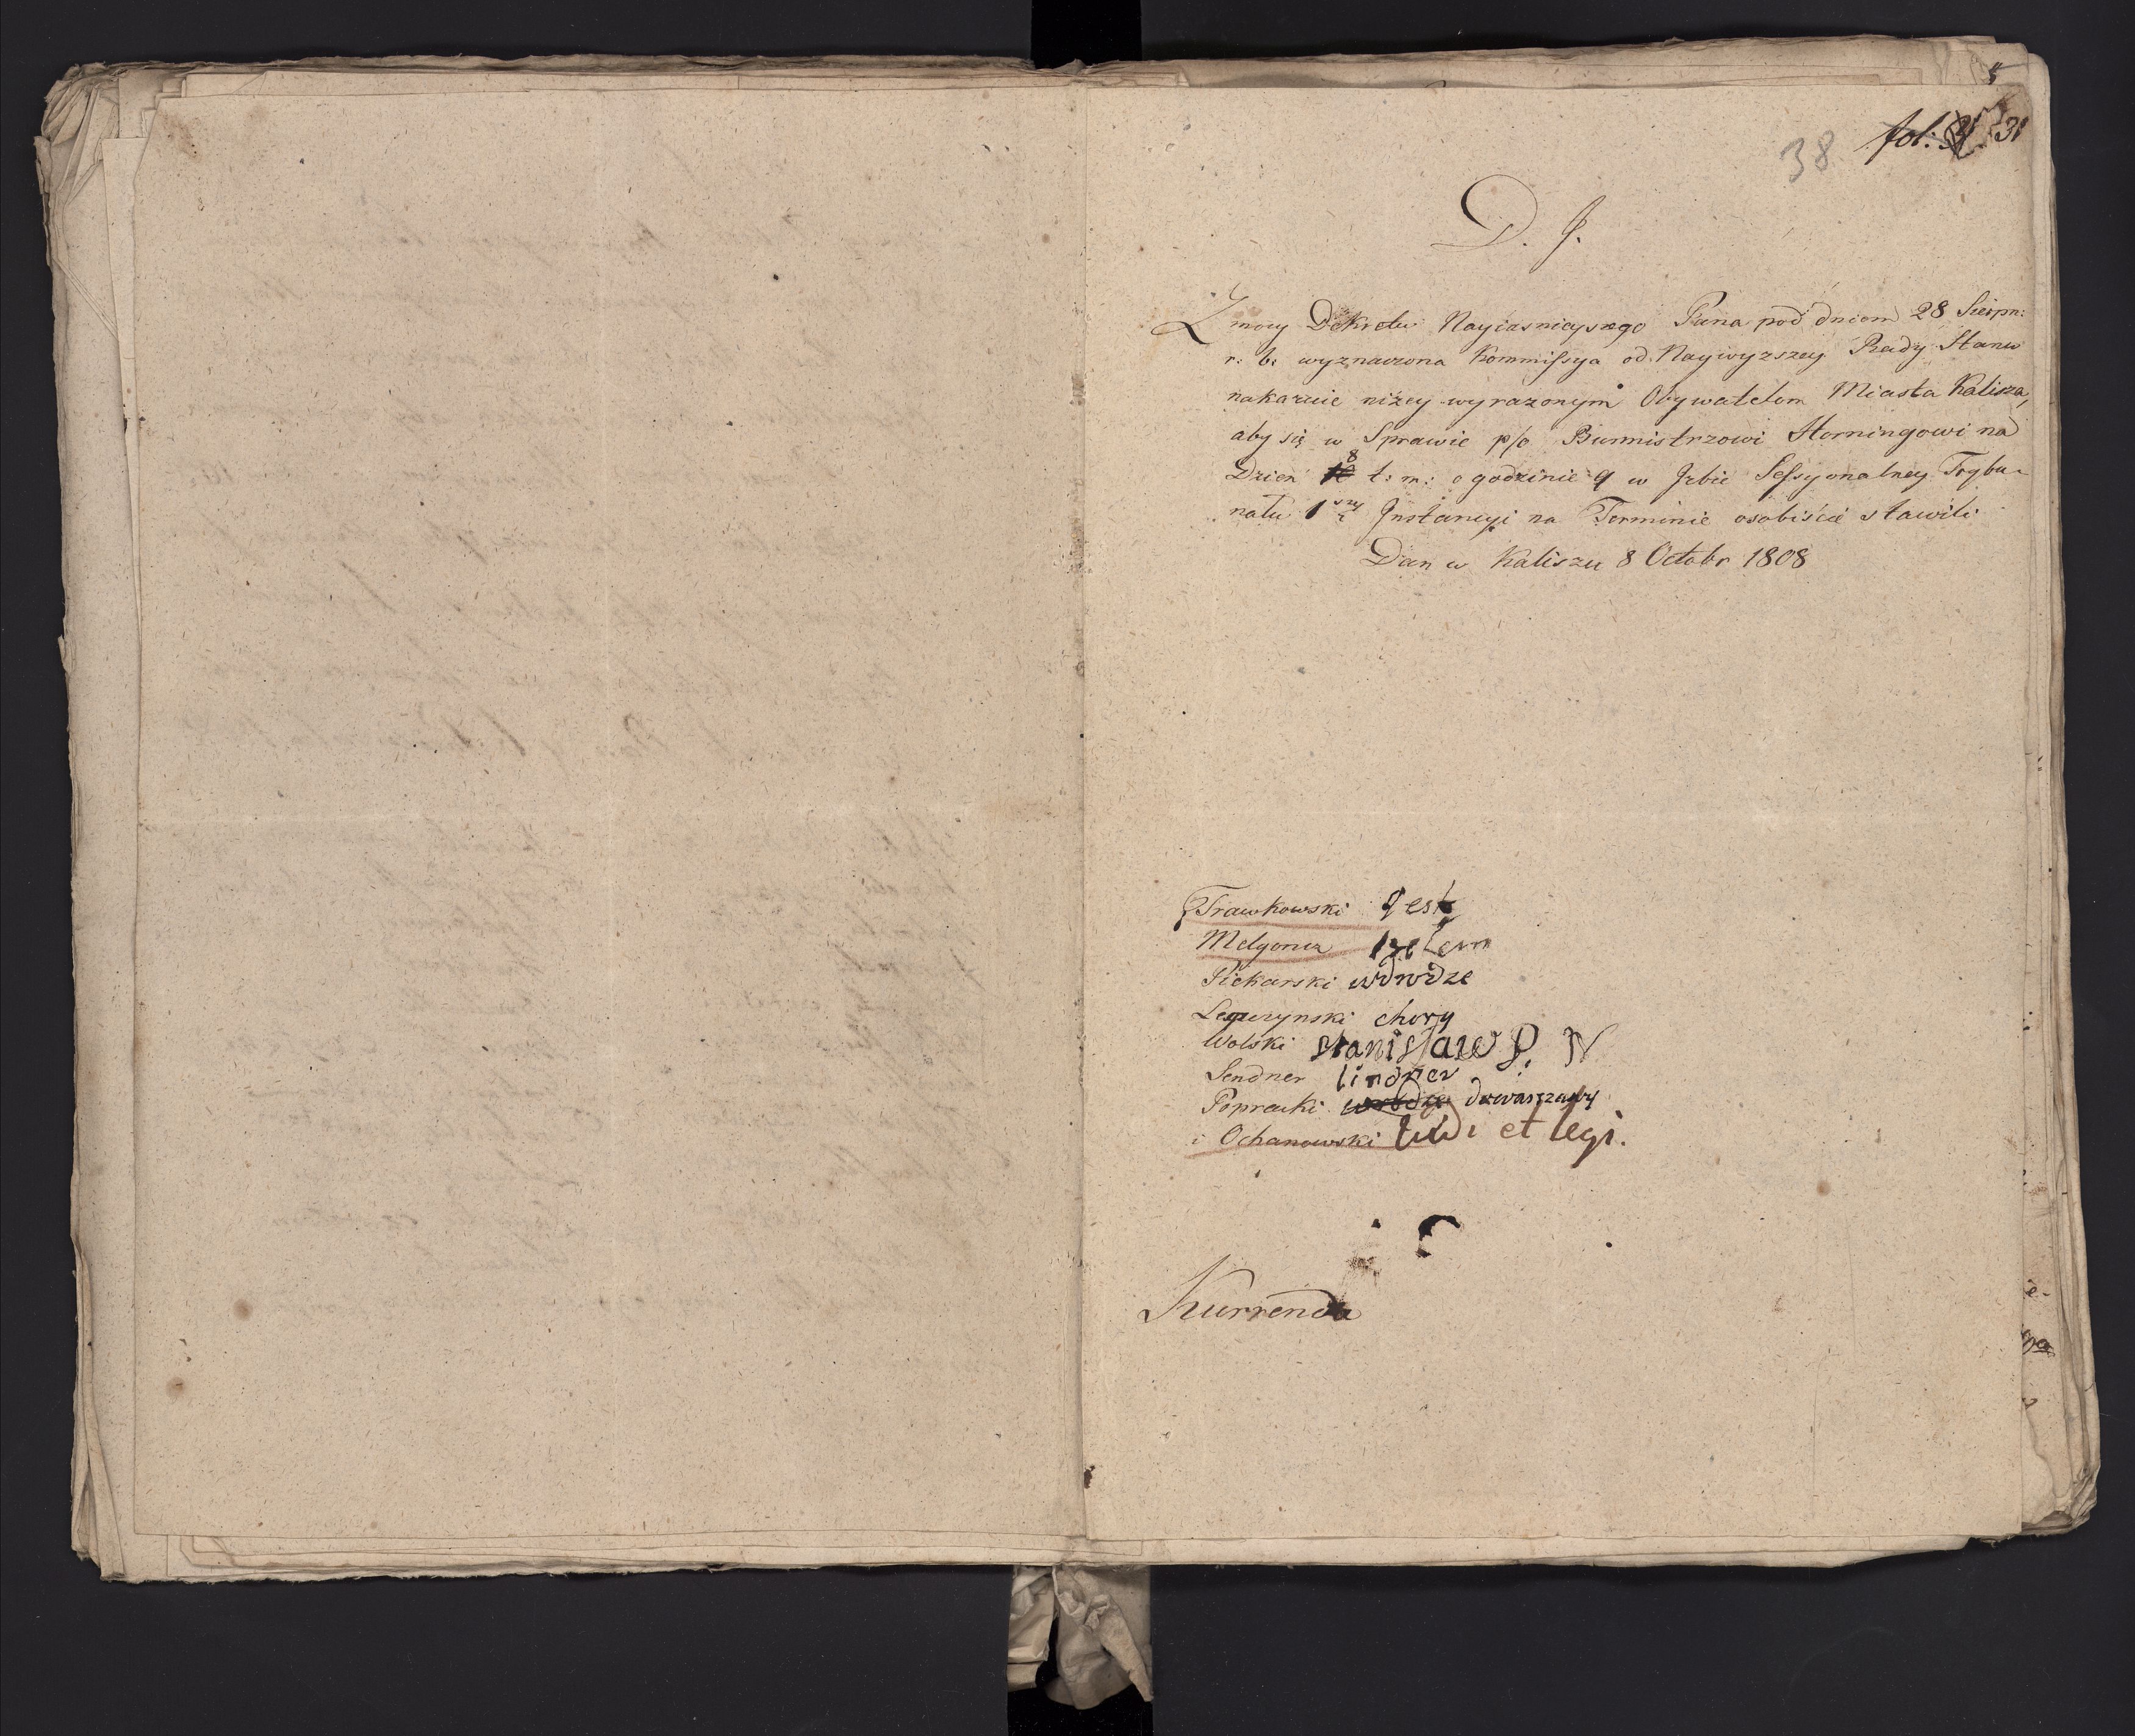 38 fol: 31
D. J.
Z mocy Dekretu Nayiasnieyszego Pana pod dniem 28 Sierpn:
r: b: wyznaczona Kommissya od Naywyzszey Rady Stanu
nakazuie niżey wyrazonym Obywatelom Miasta Kalisza,
aby się w Sprawie p/o Burmistrzowi Horningowi na
Dzien 8 t: m: o godzinie 9 w Jzbie Sessyonalney Trybu-
nału 1szy Jnstancyi na Terminie osobiście stawili
Dan w Kaliszu 8 Octobr 1808
Trawkowski Jest
Melgonia
Piekarski wdrodze
chory
Wolski Stanisław P. N
Lendner lindner
Popracki wrodze
i Ochanowski vidi et legi.
Kurrenda